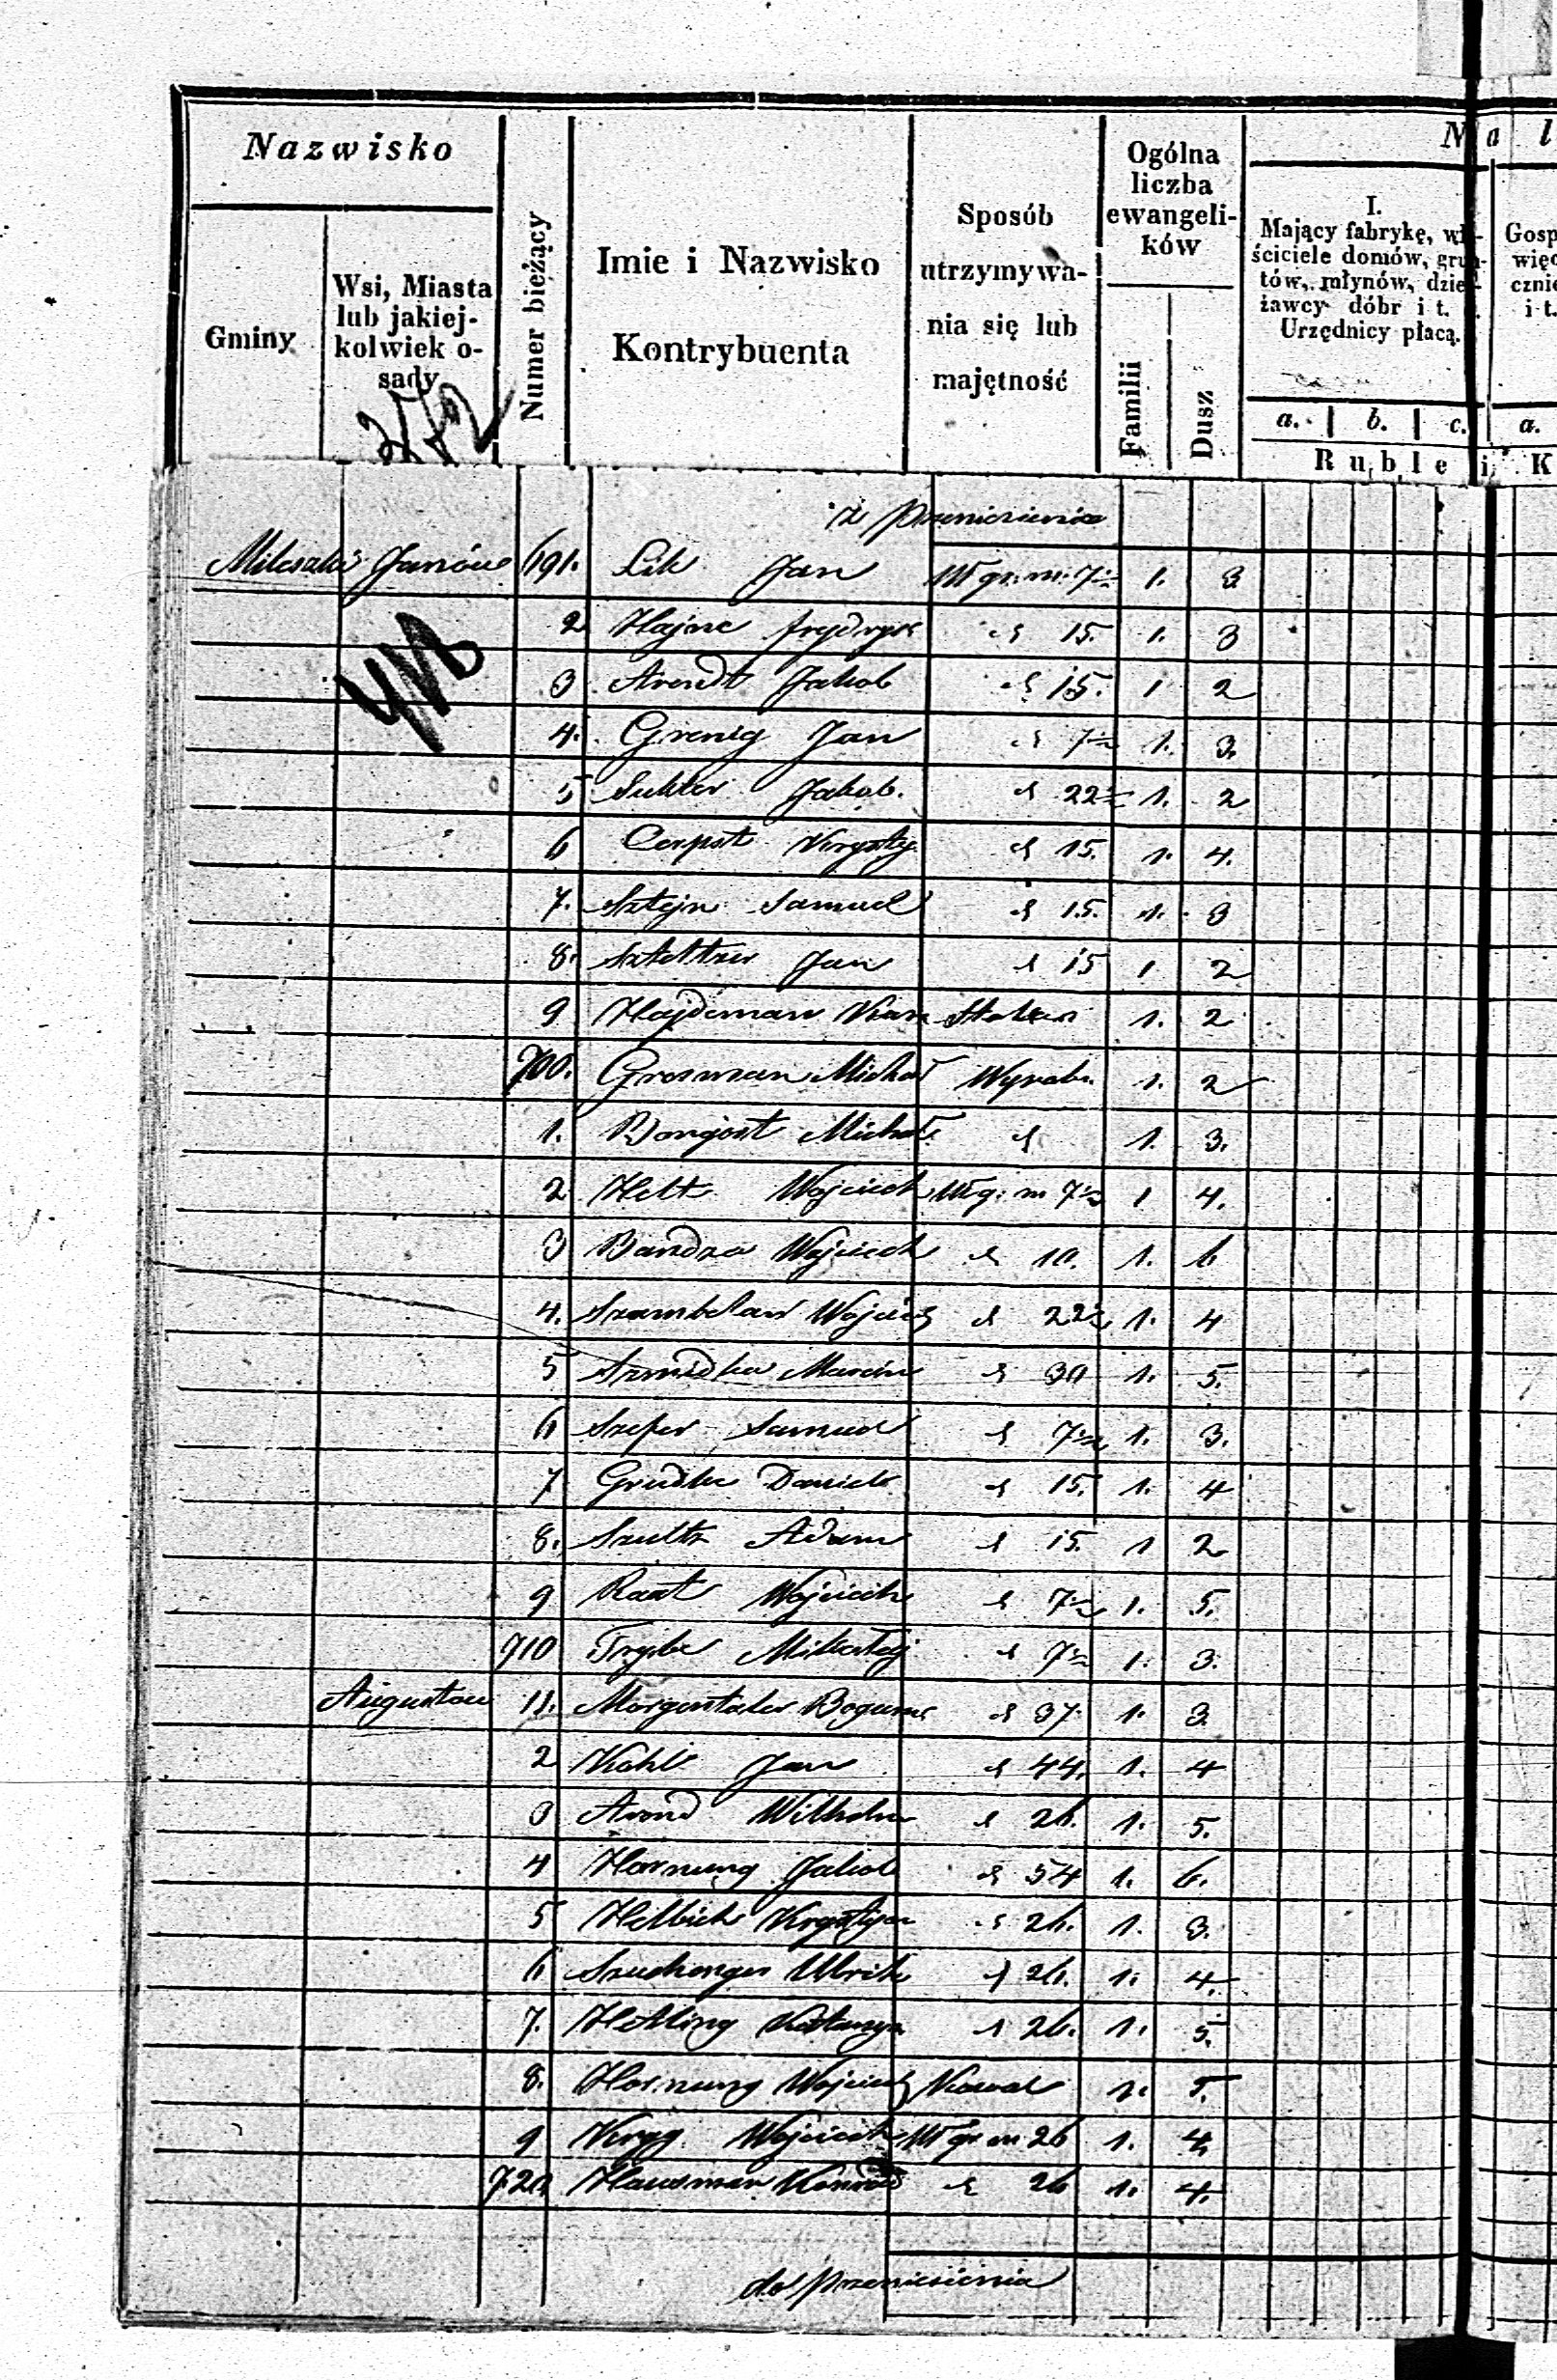 Nazwisko
Gminy
Wsi, Miasta
lub jakiej-
kolwiek o-
sady
Numer bieżący
Imie i Nazwisko
Kontrybuenta
Sposób
utrzymywa-
nia się lub
majętność
Ogólna
liczba
ewangeli-
ków
Familii
Dusz
N a l
I.
Mający fabrykę, wł-
ściciele domów, grun-
tów, młynów, dzier-
żawcy dóbr i t.
Urzędnicy płacą.
a. b. c.
Ruble i K
Gosp
więc
cznie
i t.
a.
z przeniesienia
Mileszki Janów 691. Lik Jan Wł gr. m. 7½ 1. 3
2 Hajne frydryk d 15. 1. 3
3 Arendt Jakob d 15. 1 2
4. Grenig Jan d 7½ 1. 3.
5 Jakob. d 22½ 1. 2
6 Cerpst Krysty. d 15. 1. 4.
7. Sztejn Samuel d 15. 1. 3
8. Jan d 15 1 2
9 Hajdeman 1. 2
700. Grosman Michał Wyrobn. 1. 2
1. Bongost Michał d 1. 3.
2 Helt Wojciech Wł g. m 7½ 1 4.
3 Bandza Wojciech d 10. 1. 6
4. Szambelan Wojciech d 22½ 1. 4
5 Szmidka Marcin d 30 1. 5.
6 Szefer Samuel d 7½ 1. 3.
7 Grudke Daniel d 15. 1. 4
8. Szultz Adam d 15. 1 2
9 Raat Wojciech d 7½ 1. 5.
710 Trybe Mikołaj d 7½ 1. 3.
Augustow 11. Morgentaler Bogum. d 37. 1. 3
2 Kohl Jan d 44. 1. 4
3 Arend Wilhelm d 26. 1. 5.
4 Hornung Jakob d 54 1. 6.
5 Helbich Krystyan d 26. 1. 3.
6 Ulrik d 26. 1. 4.
7. Hetling d 26. 1. 5.
8. Hornung Wojciech Kowal 1. 5.
9 Kryg Wojciech Wł gr. m 26 1. 4
720 Hausman Konrad d 26 1. 4.
do przeniesienia